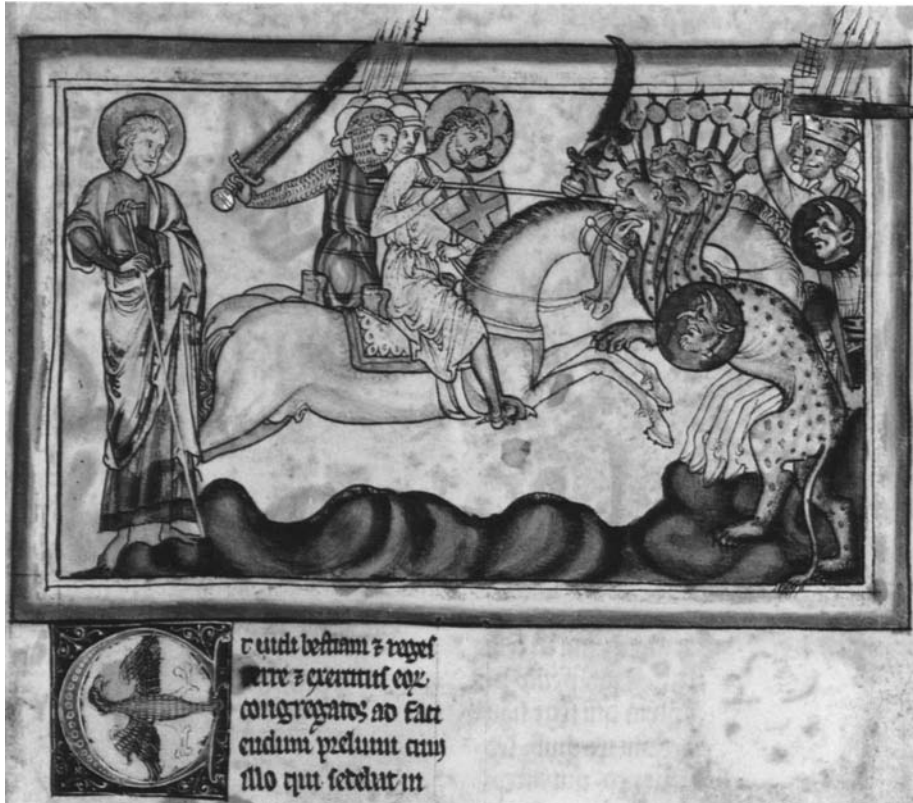 t uidit bestiam ⁊ reges
terre ⁊ exercitus eoꝝ
congregatos ad faci
endum prelium cum
illo qui sedebat in